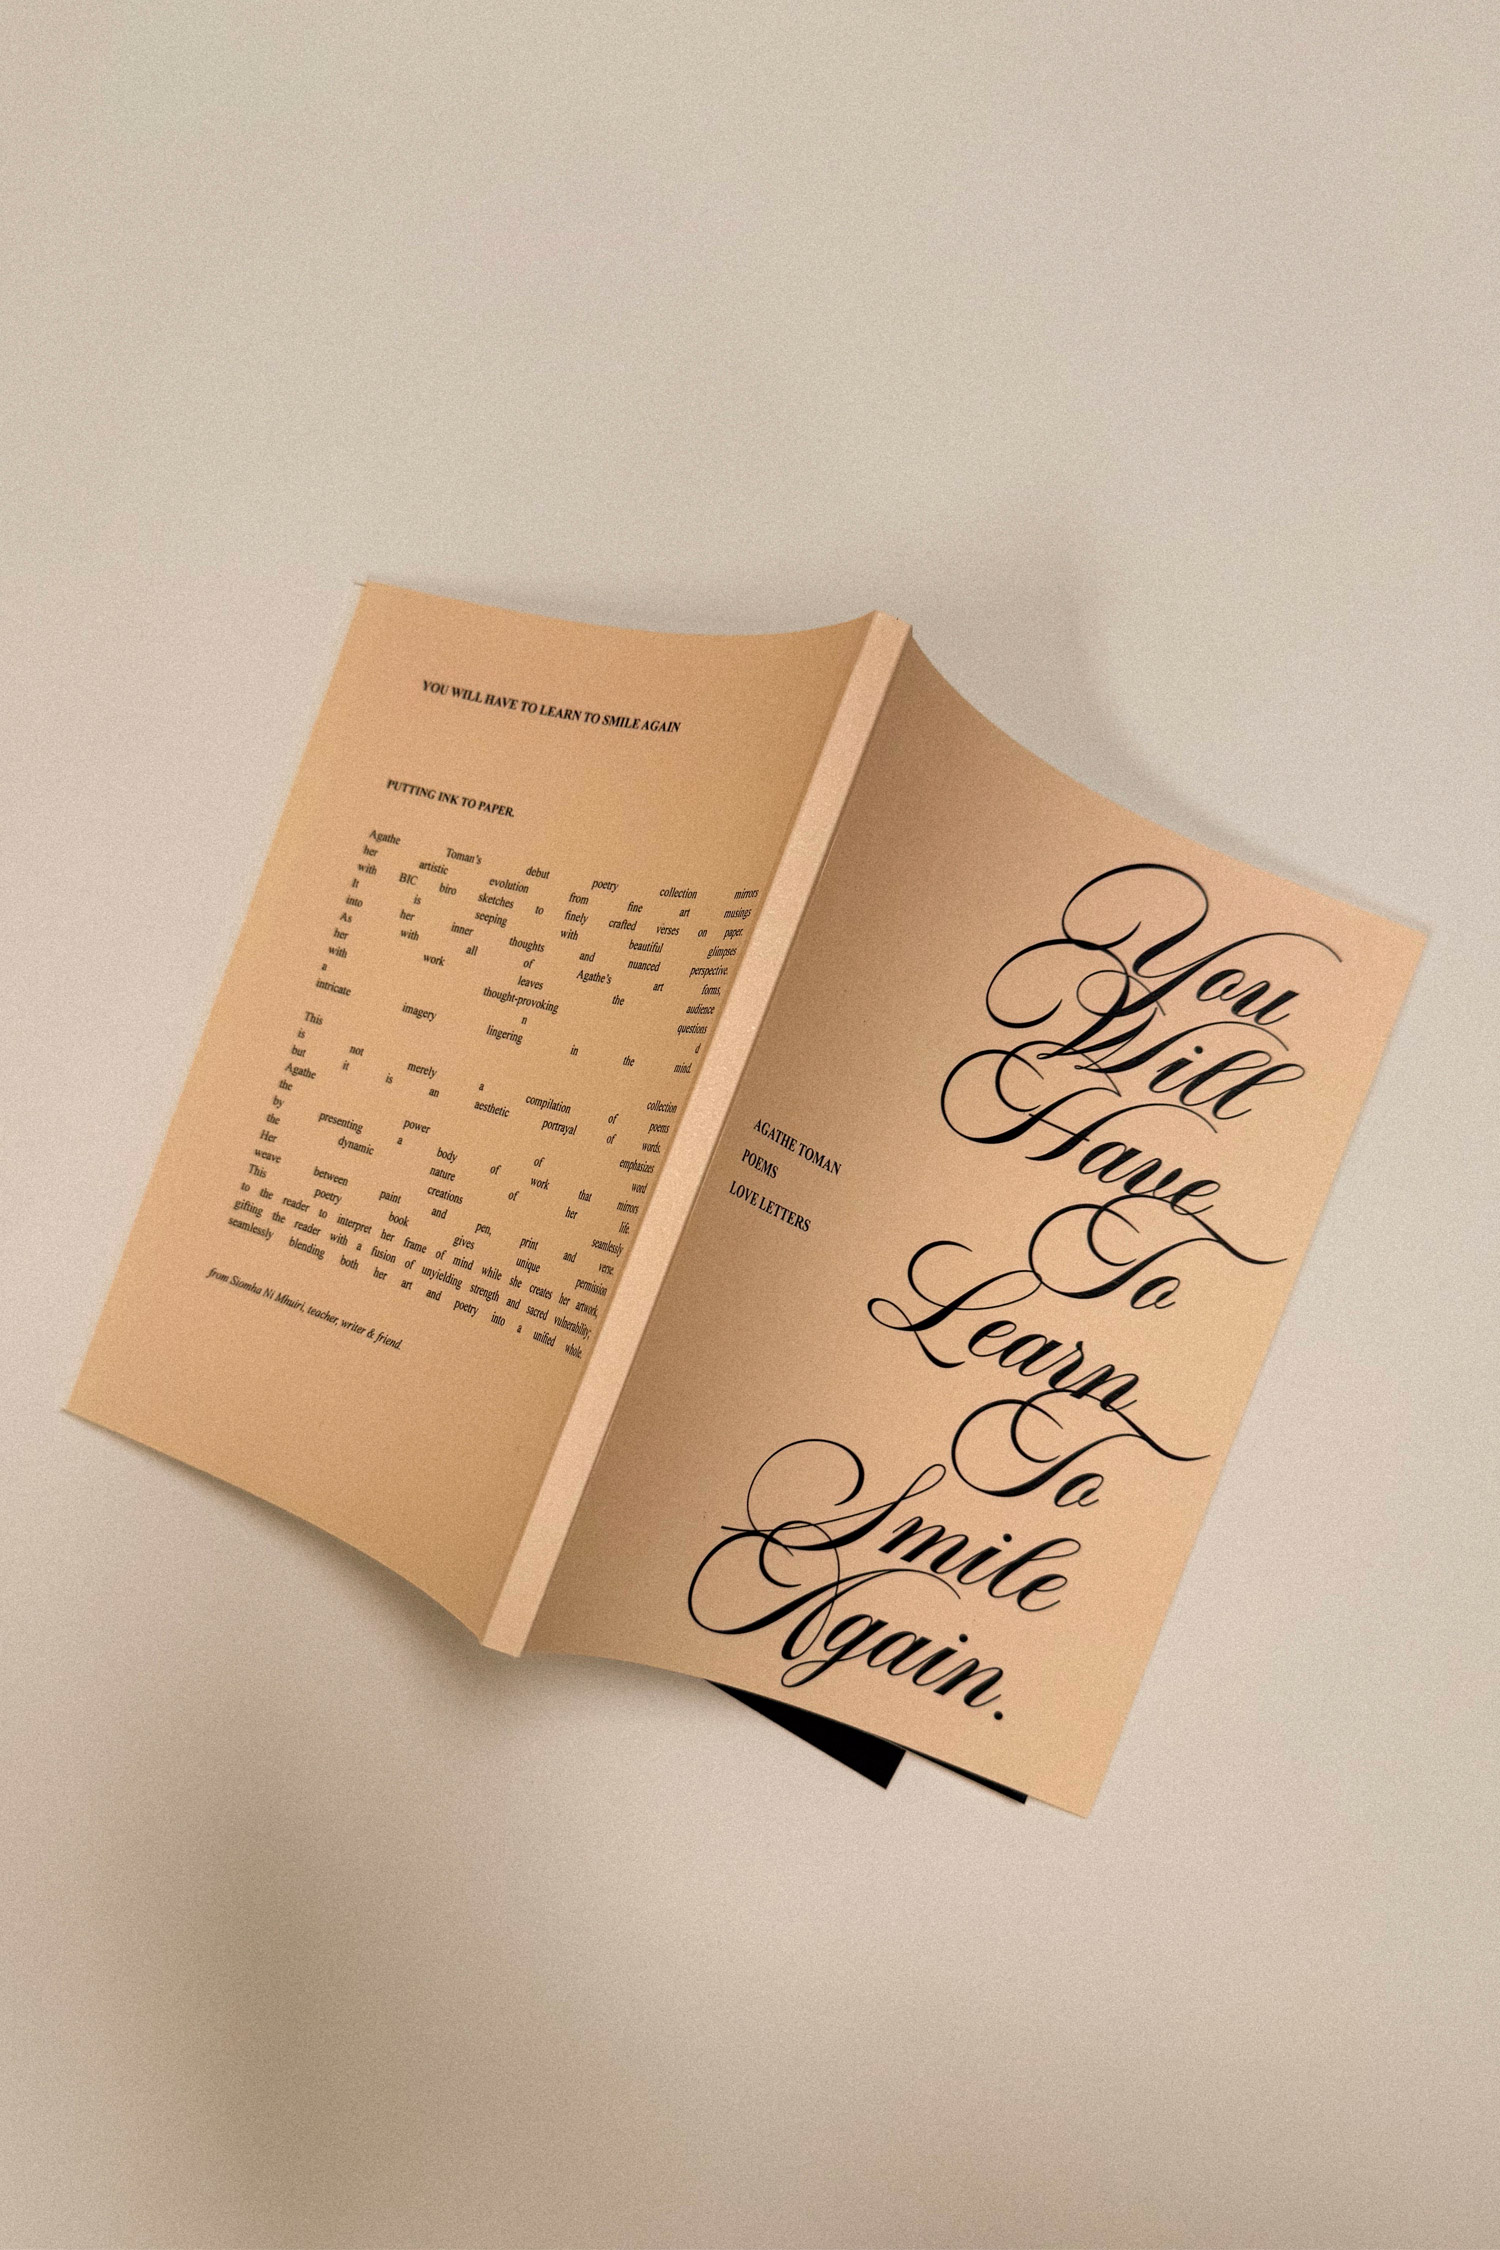 YOU WILL HAVE TO LEARN TO SMILE AGAIN
PUTTING INK TO PAPER.
Agathe Toman's debut poetry collection mirrors
her artistic evolution from fine art musings
with BIC biro sketches to finely crafted verses on paper.
It is seeping with beautiful glimpses
into her inner thoughts and nuanced perspective.
As with all of Agathe's art forms,
her work leaves the audience
with thought-provoking questions
a n d
intricate imagery lingering in the mind.
This collection
is not merely a compilation of poems
but it is an aesthetic portrayal of words.
Agathe emphasizes
the power of word
by presenting a body of work that mirrors
the dynamic nature of her life.
Her creations seamlessly
weave between paint and pen, print and verse.
This poetry book gives unique permission
to the reader to interpret her frame of mind while she creates her artwork,
gifting the reader with a fusion of unyielding strength and sacred vulnerability;
seamlessly blending both her art and poetry into a unified whole.
from Siomha Ni Mhuiri, teacher, writer & friend.
AGATHE TOMAN
POEMS
LOVE LETTERS
You
Will
Have
To
Learn
To
Smile
Again.